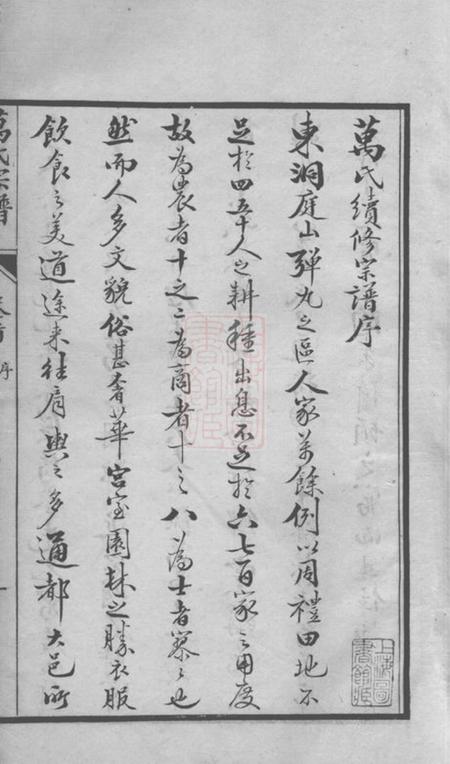 萬氏續修宗譜序
東洞庭山彈丸之區人家萬餘例以周禮田地不
足於四五十人之耕種出息不足於六七百家之用度
故為農者十之二為商者十之八為士者寥寥也
然而人多文貌俗甚奢華宮室園林之勝衣服
飲食之美道途來往肩輿之多通都大邑所
萬氏宗譜
卷首
序
上海圖書館藏